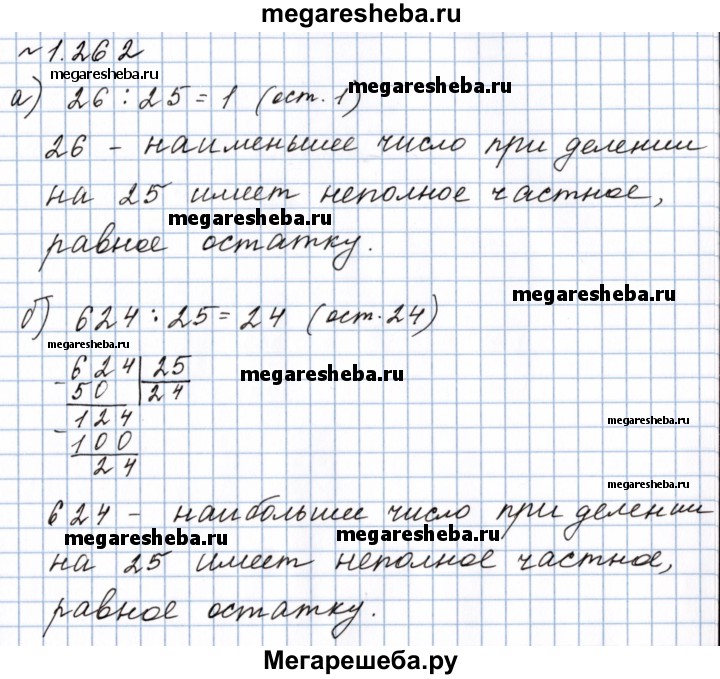 megaresheba.ru
~ 1.262
megaresheba.ru
megaresheba.ru
а) 26 : 25 = 1 (ост. 1)
26 – наименьшее число при делении
на 25 имеет неполное частное,
megaresheba.ru
равное остатку.
megaresheba.ru
б) 624 : 25 = 24 (ост. 24)
megaresheba.ru
megaresheba.ru
- 624 | 25
50 | 24
- 124
100
24
megaresheba.ru
megaresheba.ru
624 – наибольшее число при делении
megaresheba.ru
megaresheba.ru
на 25 имеет неполное частное,
равное остатку.
Мегарешеба.ру